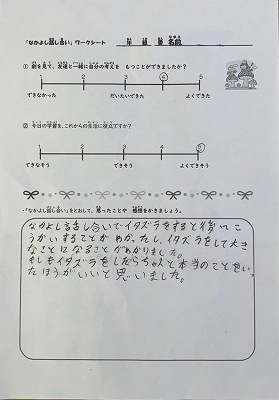 「なかよし話し合い」ワークシート 年 組 番 名前
① 劇を見て、友達と一緒に自分の考えを もつことができましたか?
1 2 3 4 5
できなかった だいたいできた よくできた
② 今日の学習を、これからの生活に役立てですか?
1 2 3 4 5
できなそう できそう よくできそう
・「なかよし話し合い」をとおして、思ったことや 感想をかきましょう。
なかよし話し合いでイタズラをすると後でこ
うかいすることがわかったし、イタズラをして大き
なことになることがわかりました。
もしもイタズラをしたらちゃんと本当のことをい
たほうがいいと思いました。